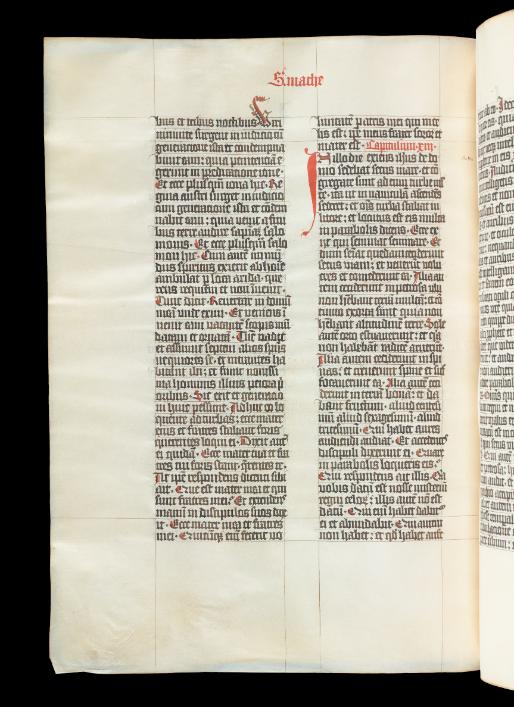 S. mathe
bus et tribus noctibus. Viri
niniuite surgent in iudicio cū
generacione ista et condempna
bunt eam: quia penitenciā e
gerunt in predicacione ione.
Et ecce plusqm iona hic. Re
gina austri surget in iudicio
cum generacione ista et condem
nabit eam: quia venit a fini
bus terre audire sapiam salo
monis. Et ecce plusqm salo
mon hic. Cum autē inmū
dus spiritus exierit ab hoīe
ambulat p loca arida. que
rens requiem et non inuenit.
Tunc dicit. Reuertar in domū
meā unde exiui. Et veniens ī
uenit eam vacantē scopis mū
datam et ornatā. Tūc vadit
et assumit septem alios spūs
nequiores se. et intrantes ha
bitant ibi: et fiunt nouissi
ma hominis illius peiora p
oribus. Sic erit et generacio
ni huic pessime. Adhuc eo lo
quente ad turbas: ecce mater
eius et fratres stabant foris
querentes loqui ei. Dixit autē
ei quidā. Ecce mater tua et fra
tres tui foris stant querētes te.
At ipē respondens dicenti sibi
ait. Que est mater mea et qui
sunt fratres mei. Et extendēs
manū in discipulos suos dix
it. Ecce mater mea et fratres
mei. Quicūqꝫ enī fecerit vo
luntatē patris mei qui in ce
lis est: ipē meus frater soror et
mater est. Capitulum xiii.
In illo die exiens ihūs de do
mo sedebat secus mare. et cō
gregate sunt ad eum turbe ml̄
te. ita ut in nauicula ascendēs
sederet: et oīs turba stabat in
litore: et locutus est eis multa
in parabolis dicens. Ecce ex
iit qui seminat seminare. Et
dum seīat quedam ceciderunt
secus viam: et venerūt volu
cres et comederunt ea. Alia au
tem ceciderunt in petrosa ubi
non hēbant terrā multā: et cō
tinuo exorta sunt quia non
hēbant altitudinē terre. Sole
autē orto estuauerunt: et qꝫ
non habebāt radicē aruerūt.
Alia autem ceciderunt in spi
nas: et creuerunt spine et suf
focauerunt ea. Alia autē ceci
derunt in terrā bonā: et da
bant fructum. aliud centesī
mū aliud sexagesimū. aliud
tricesimū. Qui habet aures
audiendi audiat. Et accedentes
discipuli dixerunt ei. Quare
in parabolis loqueris eis.
Qui respondens ait illis. Quia
vobis datū est nosse misteria
regni celoꝝ: illis autē nō est
datū. Qui enī habet dabitur
ei et abundabit. Qui autem
non habet: et qd habet aufe